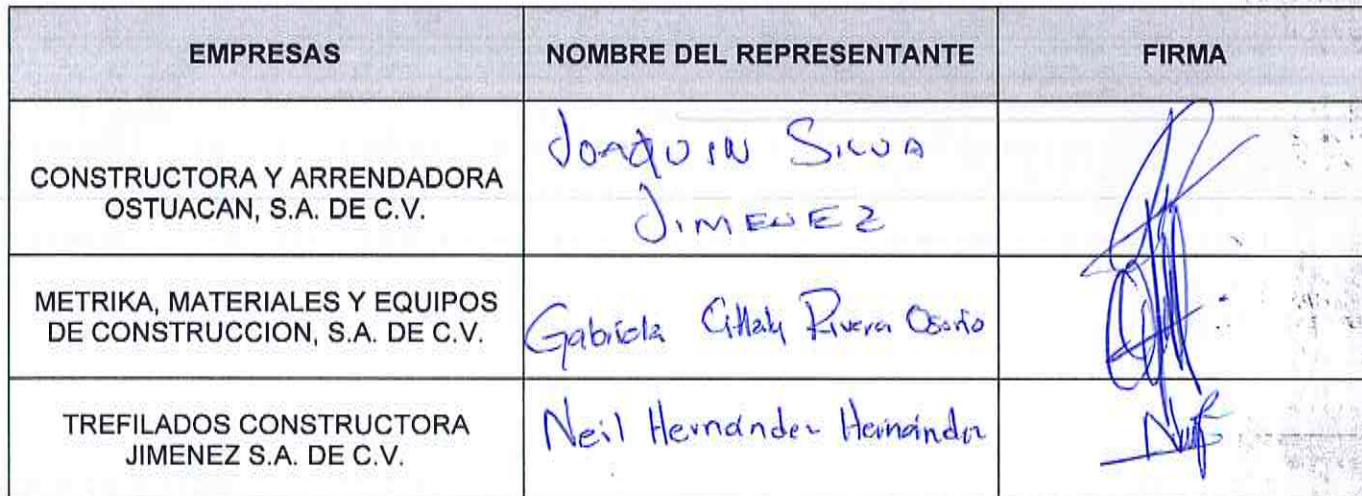 EMPRESAS NOMBRE DEL REPRESENTANTE FIRMA
CONSTRUCTORA Y ARRENDADORA
OSTUACAN, S.A. DE C.V.
JOAQUIN SILVA
JIMENEZ
METRIKA, MATERIALES Y EQUIPOS
DE CONSTRUCCION, S.A. DE C.V.
Gabriela Citlaly Rivera Osorio
TREFILADOS CONSTRUCTORA
JIMENEZ S.A. DE C.V.
Neil Hernández Hernández